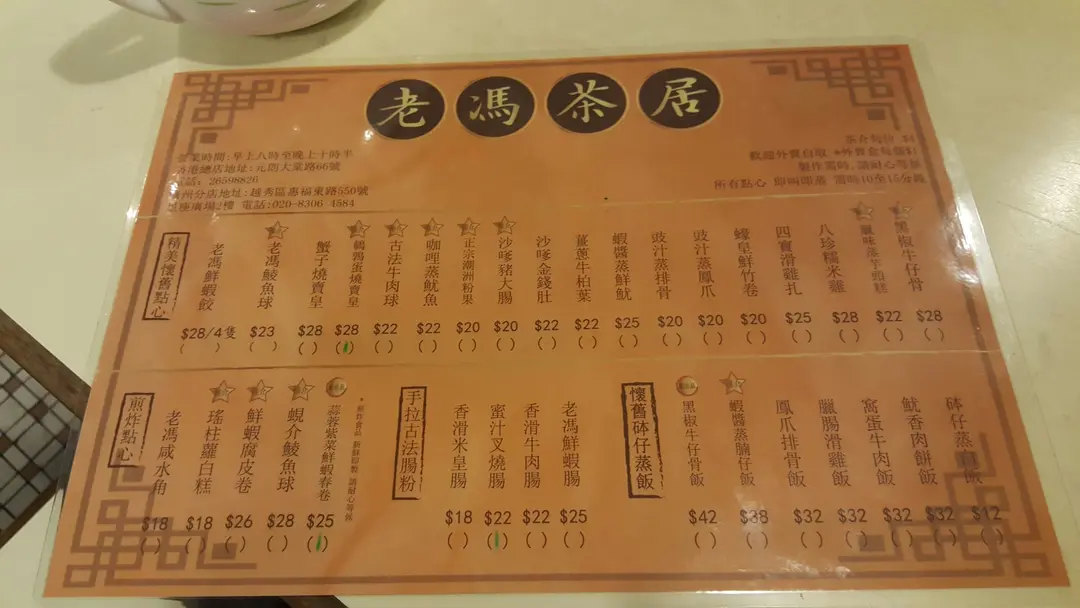 老馮茶居
營業時間:早上八時至晚上十時半
香港總店地址:元朗大棠路66號
電話: 26598826
廣州分店地址:越秀區惠福東路550號
廣場2樓 電話:020-8306 4584
茶介每位 $4
歡迎外賣自取 *外賣盒每個$1
製作需時,請耐心等候
所有點心 即叫即蒸 需時10至15分鐘
精美懷舊點心
老馮鮮蝦餃 $28/4隻 ( )
老馮鯪魚球 $23 ( )
蟹子燒賣皇 $28 ( )
鵪鶉蛋燒賣皇 $28 ( )
古法牛肉球 $22 ( )
咖哩蒸魷魚 $22 ( )
正宗潮洲粉果 $20 ( )
沙嗲豬大腸 $20 ( )
沙嗲金錢肚 $22 ( )
薑蔥牛柏葉 $22 ( )
蝦醬蒸鮮魷 $25 ( )
豉汁蒸排骨 $20 ( )
豉汁蒸鳳爪 $20 ( )
蠔皇鮮竹卷 $20 ( )
四寶滑雞扎 $25 ( )
八珍糯米雞 $28 ( )
臘味蒸芋頭糕 $22 ( )
黑椒牛仔骨 $28 ( )
煎炸點心
老馮咸水角 $18 ( )
瑤柱蘿白糕 $18 ( )
鮮蝦腐皮卷 $26 ( )
蜆介鯪魚球 $28 ( )
蒜蓉紫菜鮮蝦春卷 $25 ( )
*煎炸食品 新鮮即製 請耐心等候
手拉古法腸粉
香滑米皇腸 $18 ( )
蜜汁叉燒腸 $22 ( )
香滑牛肉腸 $22 ( )
老馮鮮蝦腸 $25 ( )
懷舊砵仔蒸飯
黑椒牛仔骨飯 $42 ( )
蝦醬蒸腩仔飯 $38 ( )
鳳爪排骨飯 $32 ( )
臘腸滑雞飯 $32 ( )
窩蛋牛肉飯 $32 ( )
魷香肉餅飯 $32 ( )
砵仔蒸飯 $12 ( )